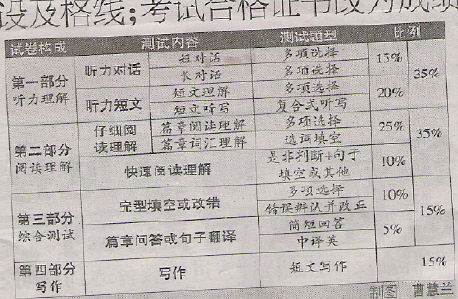 设及格线；考试合格证书改为成绩
试卷构成 测试内容 测试题型 比例
第一部分 听力理解 听力对话 短对话 多项选择 15% 35%
长对话 多项选择
听力短文 短文理解 多项选择 20%
短文听写 复合式听写
第二部分 阅读理解 仔细阅读理解 篇章阅读理解 多项选择 25% 35%
篇章词汇理解 选词填空
快速阅读理解 是非判断+句子填空或其他 10%
第三部分 综合测试 完型填空或改错 多项选择 10% 15%
错误辨认并改正
篇章问答或句子翻译 简短回答 5%
中译英
第四部分 写作 写作 短文写作 15%
制图 曹慧兰